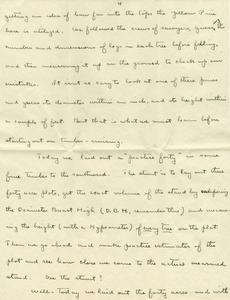 getting an idea of how far into the tops the yellow Pine
here is utilized. We followed the crews of sawyers, guess the
number and dimensions of logs in each tree before felling,
and then measuring it up on the ground to check up our
mistakes. It isn't so easy to look at one of these pines
and guess its diameter within an inch, and its height within
a couple of feet. But that is what we must learn before
starting out on timber-cruising.
Today we laid out a "practice forty" in some
fine timber to the southward. The stunt is to lay out these
forty acre plots, get the exact volume of the stand by calipering
the Diameter Breast High (D.B.H, remember this) and measur-
ing the height (with a Hypsometer) of every tree on the plot
Then we go ahead and make practice estimates of the
plot and see how close we come to the actual measured
stand. See the stunt?
Well - Today we laid out the forty acres and with